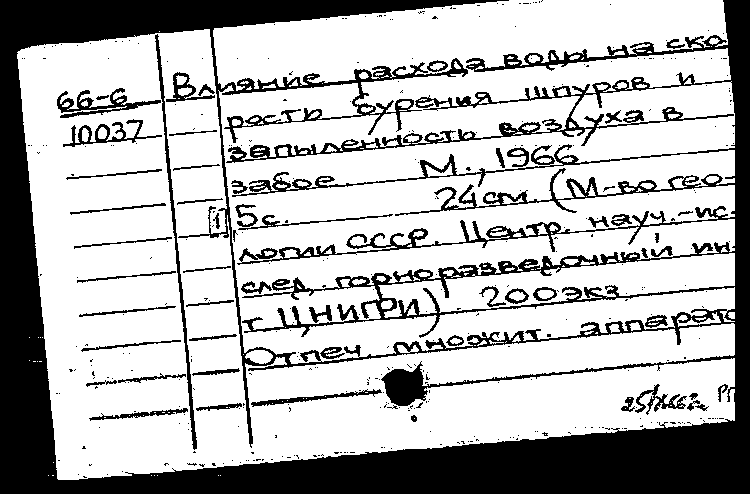 66-6 Влияние расхода воды на ско-
10037 рость бурения шпуров и
запыленность воздуха в
забое. М., 1966
[1] 5с. 24см. (М-во гео-
логии СССР. Центр. науч.-ис-
след. горноразведочный ин-
т ЦНИГРИ) 200экз
Отпеч. множит. аппарато